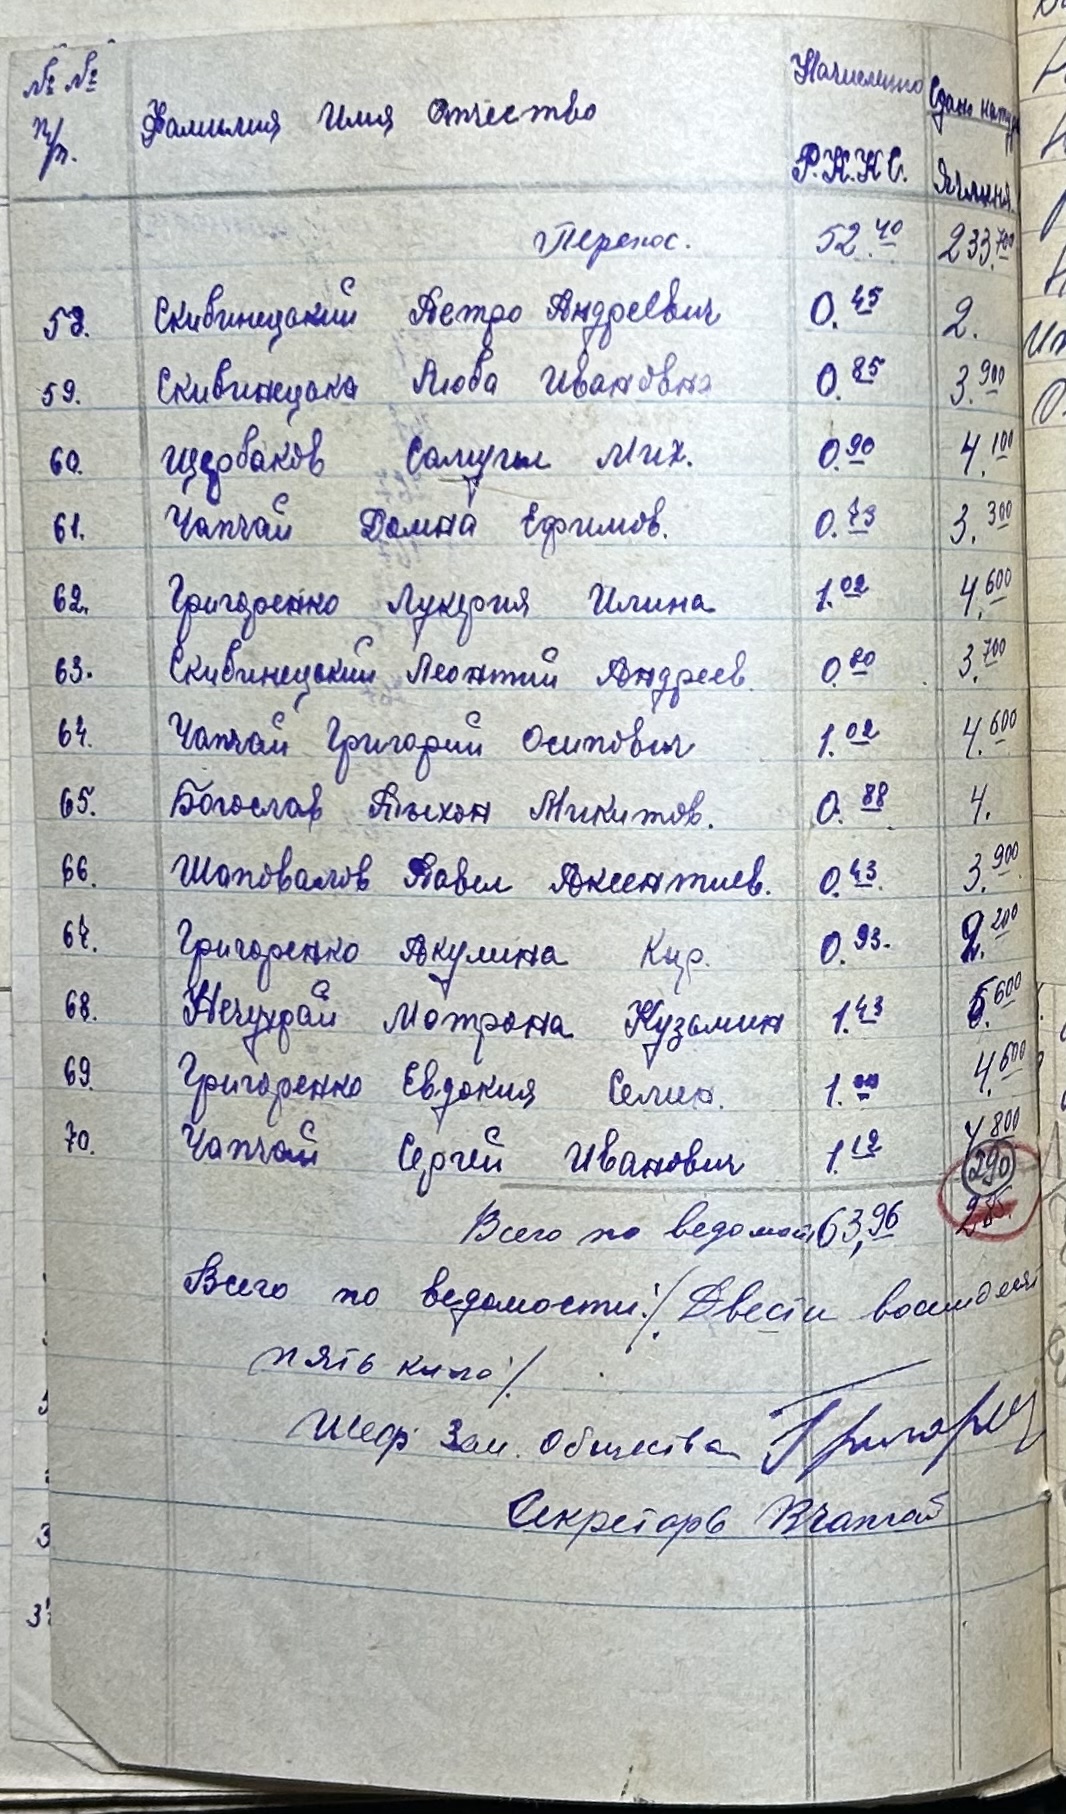 № № п/п. Фамилия Имя Отчество Начислено Р.К.К.С. Сдано натур Ячменя.
Перенос. 52.40 233.700
58. Скивинецкий Петро Андреевич 0.45 2.
59. Скивинецка Люба Ивановна 0.85 3.900
60. Щербаков Самуил Мих. 0.90 4.100
61. Чапчай Домна Ефимов. 0.73 3.300
62. Григоренко Лукерия Илина 1.02 4.600
63. Скивинецкий Леонтий Андреев. 0.80 3.700
64. Чапчай Григорий Осипович 1.02 4.600
65. Богослав Тыхон Микитов. 0.88 4.
66. Шаповалов Павел Аксентиев. 0.43 3.900
67. Григоренко Акулина Кир. 0.93. 2.200
68. Нечухрай Мотрона Кузьмин 1.43 6.600
69. Григоренко Евдокия Семен. 1.00 4.600
70. Чапчай Сергей Иванович 1.12 4.800
290
Всего по ведомости 63,96 285.
Всего по ведомости:/. Двести восимдесят
пять кило:/.
Шеф Зем. Общества
Секреторь ВЧапчай